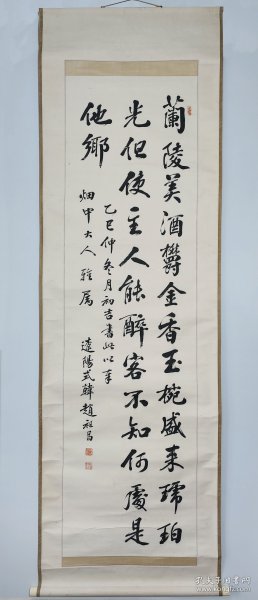 蘭陵美酒欝金香玉椀盛来琥珀
光但使主人能醉客不知何處是
他鄉
乙巳仲冬月初吉書此以奉
畑中大人雅属
遼陽式韓趙
孔夫子旧书网